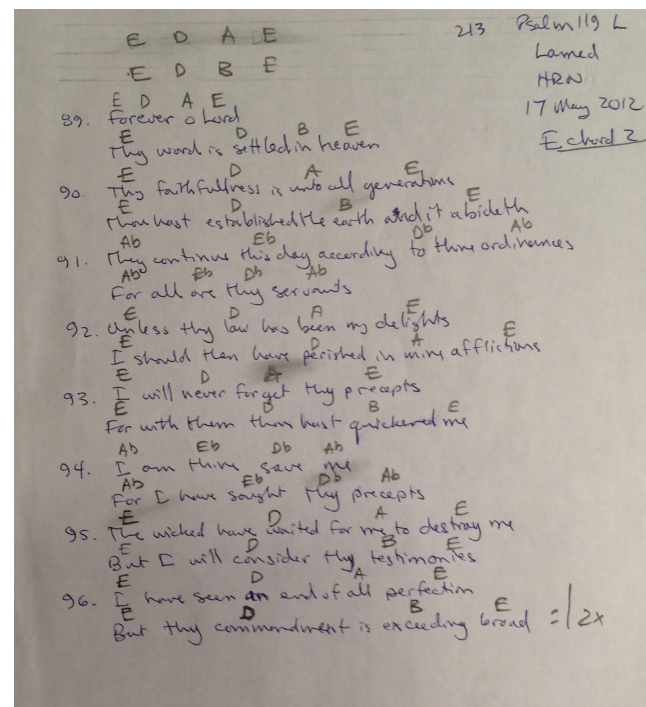 E D A E
213 Psalm 119 L
E D B E
Lamed
HRN
17 May 2012
E chord 2
E D A E
89. Forever o Lord
E D B E
Thy word is settled in heaven
E D A E
90. Thy faithfullness is unto all generations
E D B E
Thou hast established the earth and it abideth
Ab Eb Db Ab
91. They continue this day according to thine ordinances
Ab Eb Db Ab
For all are thy servants
E D A E
92. Unless thy law has been my delights
E D A E
I should then have perished in mine afflictions
E D A E
93. I will never forget thy precepts
E D B E
For with them thou hast quickened me
Ab Eb Db Ab
94. I am thine save me
Ab Eb Db Ab
For I have sought thy precepts
E D A E
95. The wicked have waited for me to destray me
E D B E
But I will consider thy testimonies
E D A E
96. I have seen an end of all perfection
E D B E
But thy commandment is exceeding broad =| 2x